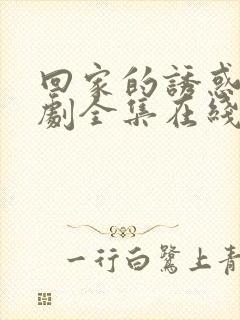 回家的誘惑
劇全集在綫
一行白鷺上青